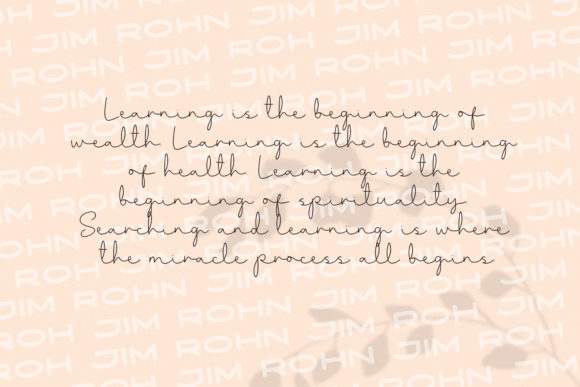 Learning is the beginning of
wealth Learning is the beginning
of health Learning is the
beginning of spirituality
Searching and learning is where
the miracle process all begins
JIM ROHN JIM ROHN JIM ROHN